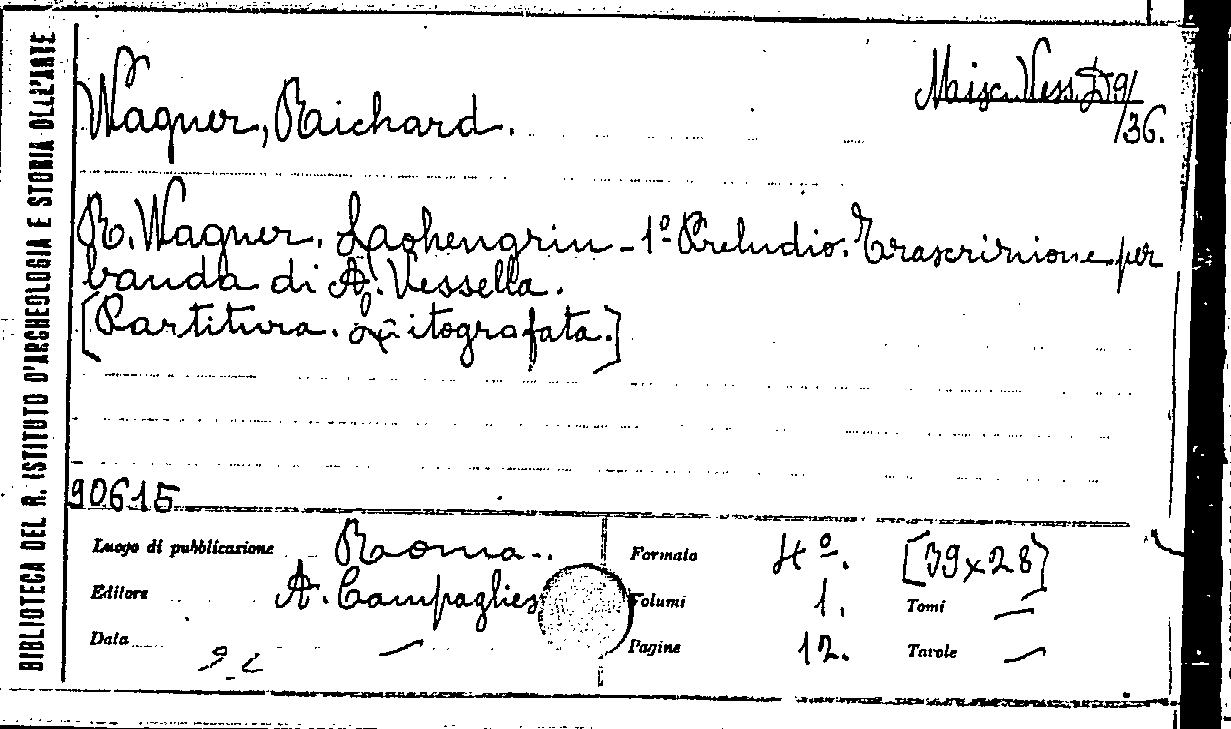 BIBLIOTECA DEL R. ISTITUTO D'ARCHEOLOGIA E STORIA DELL'ARTE
Wagner, Richard.
Misc. Vess. D9/
/36.
R. Wagner. Lohengrin - 1º Preludio. Trascrizione per
banda di A. Vessella.
[Partitura. Litografata.]
90615
Luogo di pubblicazione Roma.
Editore A. Campaglies
Data —
Formato 4º. [39x28]
Volumi 1. Tomi —
Pagine 12. Tavole —